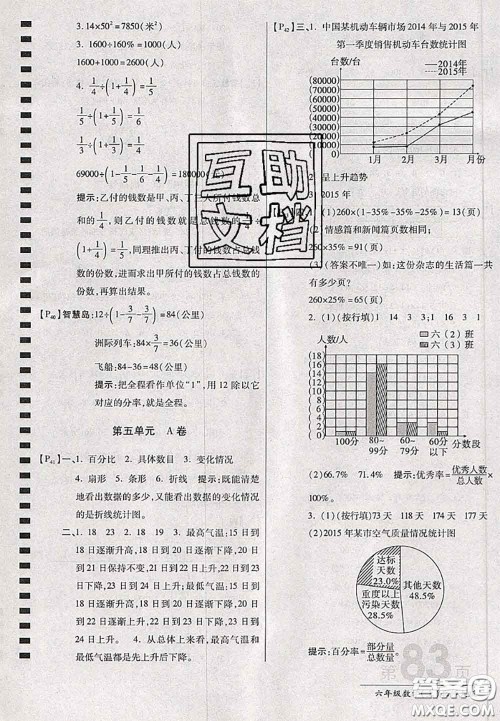 3. 14×50²=7850(米²)
3. 1600÷160%=1000(只)
1600+1000=2600(只)
4. 1/4÷(1+1/4)=1/5
1/5÷(1+1/5)=1/6
69000÷(1-1/5-1/6-1/4)=180000(元)
提示:乙付的钱数是甲、丙、丁三人所付钱数总
和的1/4,则乙付的钱数就是总钱数的1/4÷
(1+1/4)=1/5,同理推出丙、丁付的钱数占总钱数
的份数,进而求出甲所付的钱数占总钱数的份
数,再算出总钱数。
【P₄₀】智慧岛:12÷(1-3/7-3/7)=84(公里)
洲际列车:84×3/7=36(公里)
飞船:84-36=48(公里)
提示:把全程看作单位“1”,用 12 除以它
对应的分率,就是全程。
第五单元 A 卷
【P₄₁】一、1. 百分比 2. 具体数目 3. 变化情况
4. 扇形 5. 条形 6. 折线 提示:既能清楚
地看出数据的多少,又能看出数据的变化情况
的是折线统计图。
二、1. 18 23 2. 18 19 3. 最高气温:15 日到
18 日逐渐升高,18 日到 20 日逐渐下降,20 日
到 21 日保持不变,21 日到 22 日上升,22 日到
23 日下降,23 日到 24 日上升;最低气温:15
日到 18 日逐渐升高,18 日到 20 日逐渐下降,
20 日到 21 日上升,21 日到 23 日逐渐下降,23
日到 24 日上升。 4. 从总体来看,最高气温
和最低气温都是先上升后下降再上升。
【P₄₂】三、1. 中国某机动车辆市场 2014 年与 2015 年
第一季度销售机动车台数统计图
台数/台
2014年
2015年
80000
70000
60000
50000
40000
30000
20000
10000
0
1月 2月 3月 月份
2. 呈上升趋势
3. 2015 年
(1)260×(1-35%-35%-25%)=13(页)
(2)情感篇和新闻篇页数相同;
260×35%=91(页)
(3)(答案不唯一)如:这份杂志的生活篇一共
有多少页?
260×25%=65(页)
2. (1)(按行填)1 14 3 3 1 16 4 3
人数/人
六(2)班
六(3)班
18
16
14
12
10
8
6
4
2
0
100分 80~99分 60~79分 60分以下 分数段
(2)66.7% 71.4% 提示:优秀率=优秀人数/总人数
×100%。
3. (1)(按行填)73 天 118 天 174 天 177 天
(2)2015 年某市空气质量情况统计图
达标
天数
23.0%
其他天数
48.5%
重度以上
污染天数
28.5%
提示:百分率=部分量/总数量
第83页
六年级数学
互助
文档
答案圈
MXQE.COM